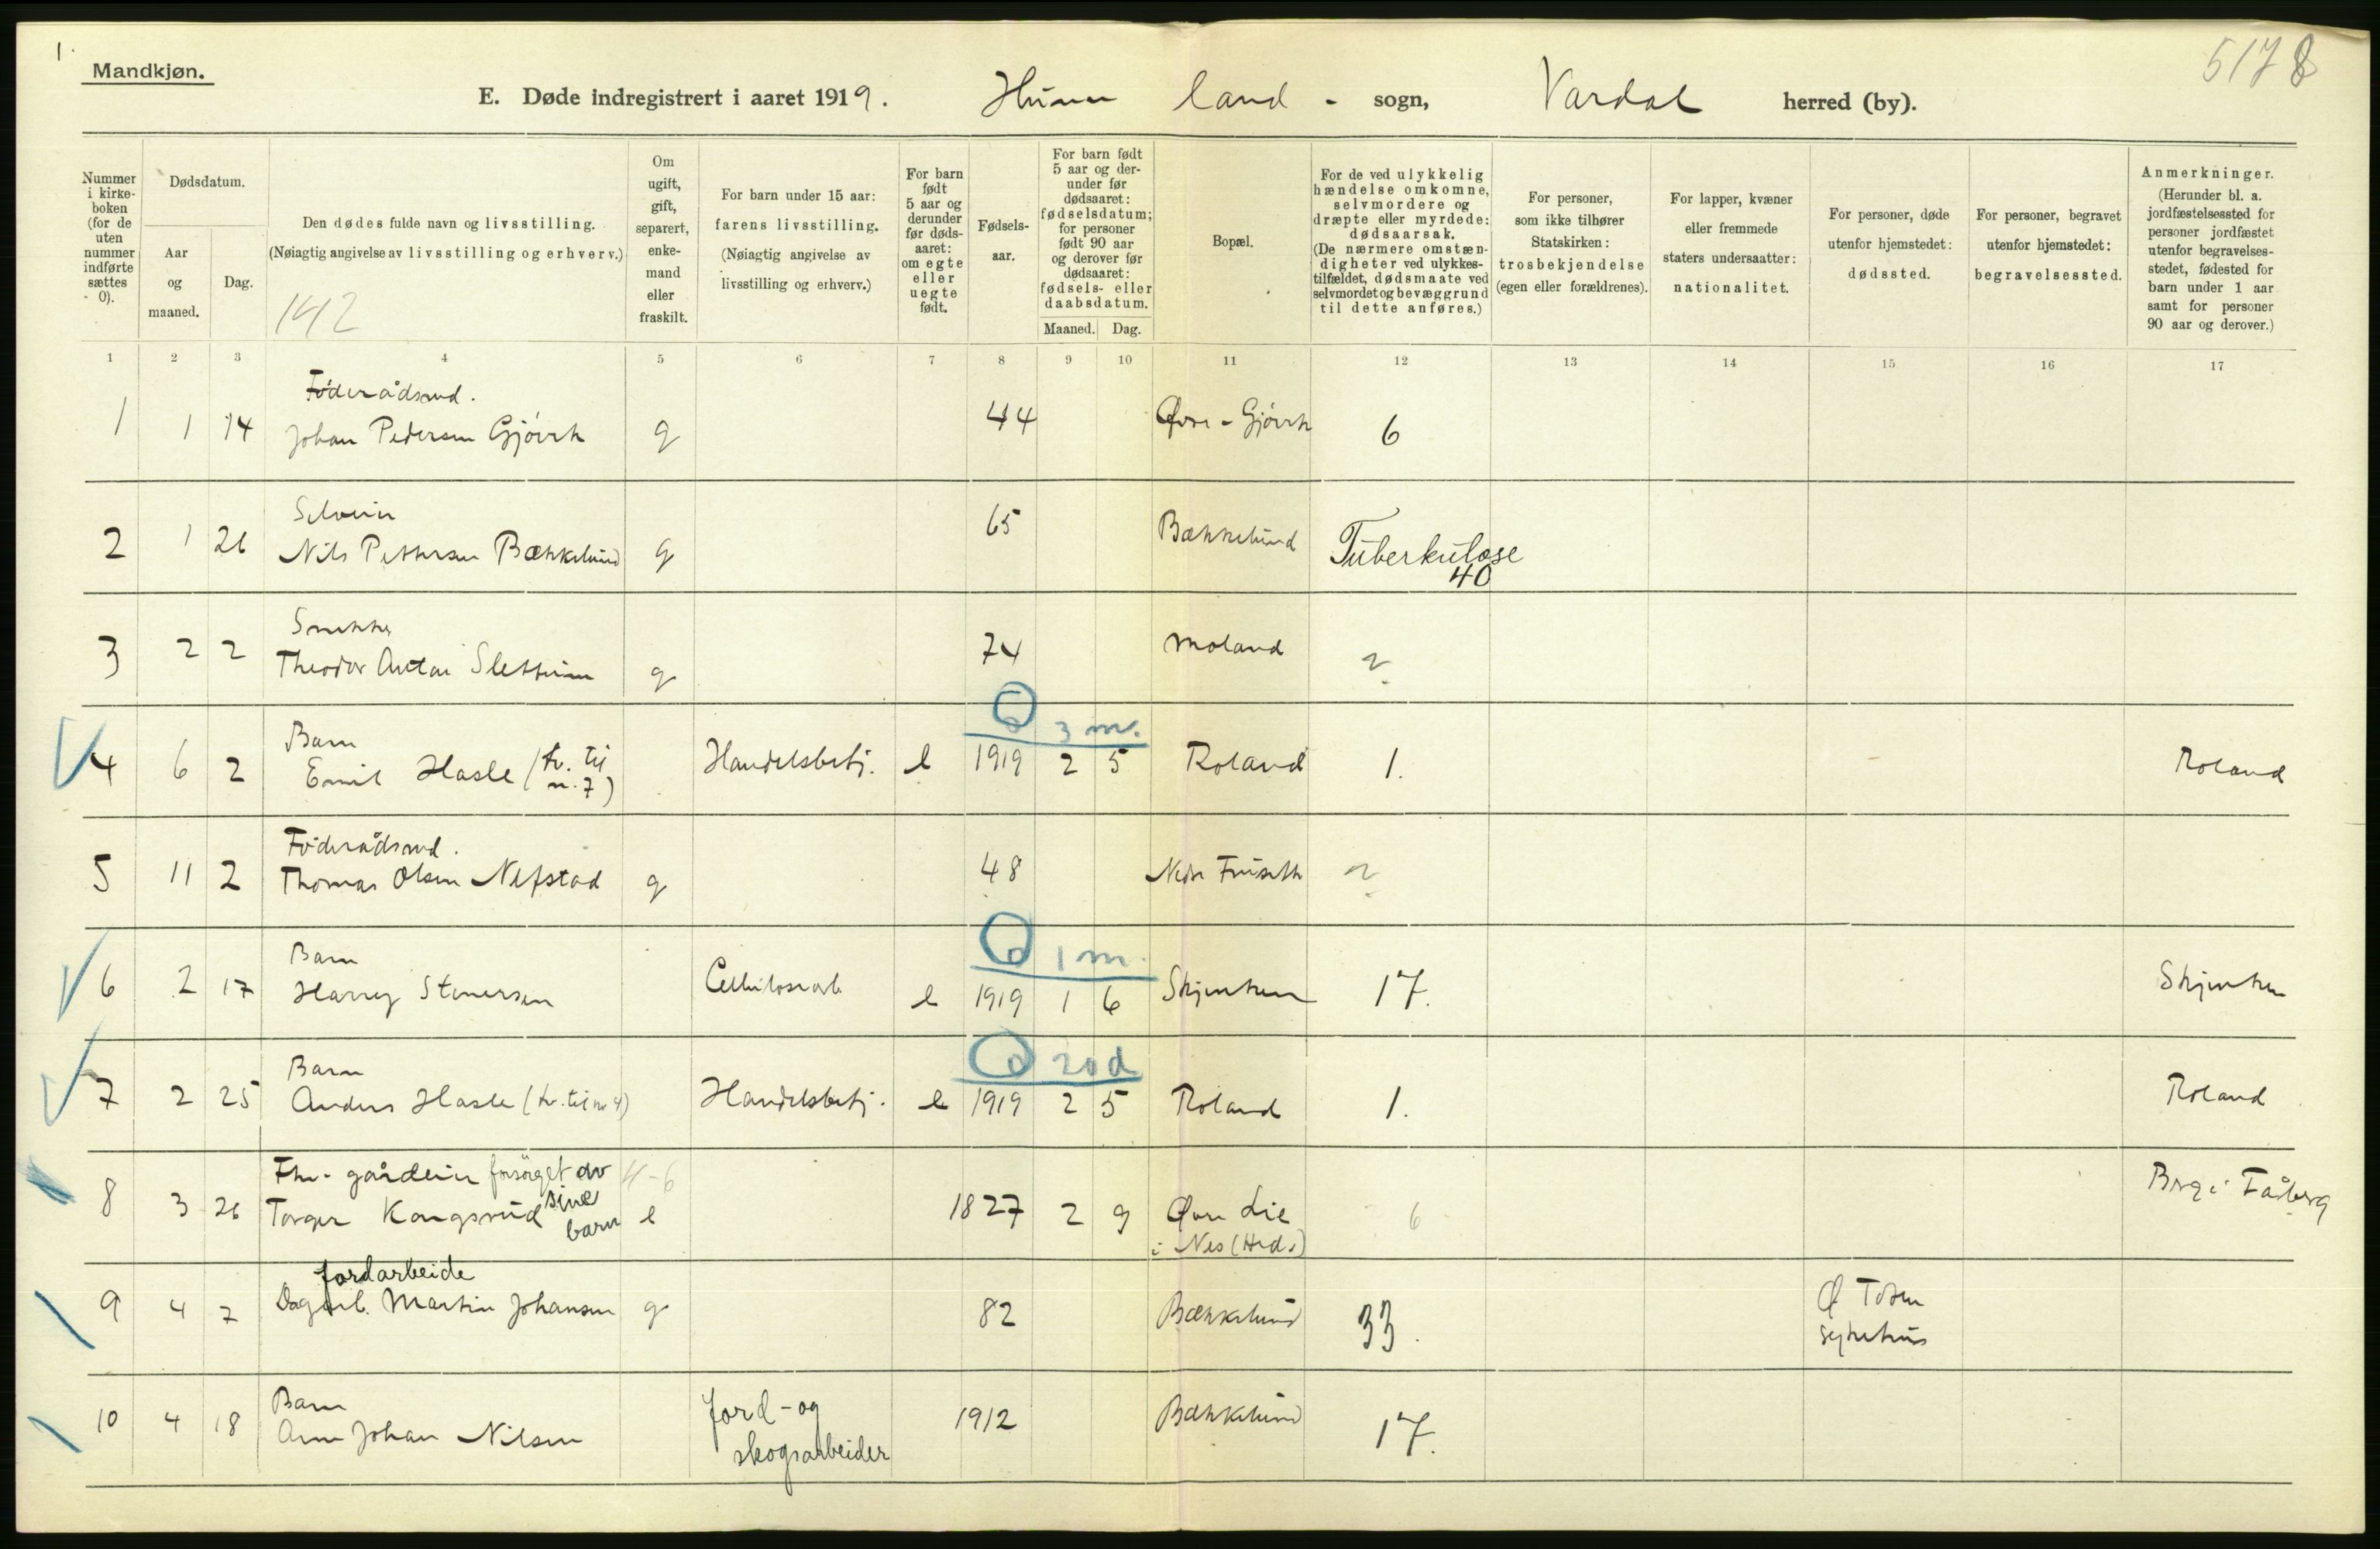 1.
Mandkjøn.
5178
E. Døde indregistrert i aaret 1919. Hunn land - sogn, Vardal herred (by).
Nummer i kirke-boken (for de uten nummer indførte sættes - 0).
Dødsdatum.
Aar og maaned.
Dag.
Den dødes fulde navn og livsstilling.
(Nøiagtig angivelse av livsstilling og erhverv.)
142
Om ugift, gift, separert, enke-mand eller fraskilt.
For barn under 15 aar: farens livsstilling.
(Nøiagtig angivelse av livsstilling og erhverv.)
For barn født 5 aar og derunder før døds-aaret: om egte eller uegte født.
Fødsels-aar.
For barn født 5 aar og der-under før dødsaaret: fødselsdatum; for personer født 90 aar og derover før dødsaaret: fødsels- eller daabsdatum.
Maaned. Dag.
Bopæl.
For de ved ulykkelig hændelse omkomne, selvmordere og dræpte eller myrdede: dødsaarsak.
(De nærmere omstæn-digheter ved ulykkes-tilfældet, dødsmaate ved selvmordet og bevæggrund til dette anføres.)
For personer, som ikke tilhører Statskirken: trosbekjendelse (egen eller forældrenes).
For lapper, kvæner eller fremmede staters undersaatter: nationalitet.
For personer, døde utenfor hjemstedet: dødssted.
For personer, begravet utenfor hjemstedet: begravelsessted.
Anmerkninger.
(Herunder bl. a. jordfæstelsessted for personer jordfæstet utenfor begravelses-stedet, fødested for barn under 1 aar samt for personer 90 aar og derover.)
1 2 3 4 5 6 7 8 9 10 11 12 13 14 15 16 17
Føderådsmd.
1 1 14 Johan Pedersen Gjøvik g 44 Øvre-Gjøvik 6
Selveier
2 1 26 Nils Pettersen Bækkelund g 65 Bækkelund Tuberkulose
40
Snekker
3 2 2 Theodor Anton g 74 Moland
3 m.
Barn
4 6 2 Emil Hasle (tv. til n. 7) Handelsbetj. e 1919 2 5 Roland 1. Roland
Føderådsmd.
5 11 2 Thomas Olsen Nefstad g 48 Nedre
1 m.
Barn
6 2 17 Harry Stenersen Cellulosearb. e 1919 1 6 17.
20 d
Barn
7 2 25 Anders Hasle (tv. til nr 4) Handelsbetj. e 1919 2 5 Roland 1. Roland
Fhv. gårdeier forsørget av sine barn 4-6
8 3 26 Torger Kongsrud e 1827 2 9 Øvre Lie i Nes (Hed.) 6 Brg i Fåberg
Jordarbeide
9 4 7 Dagarb. Martin Johansen g 82 Bækkelund 33. Ø Toten sykehus
Barn
10 4 18 Arne Johan Nilsen Jord- og skogsarbeider 1912 Bækkelund 17.